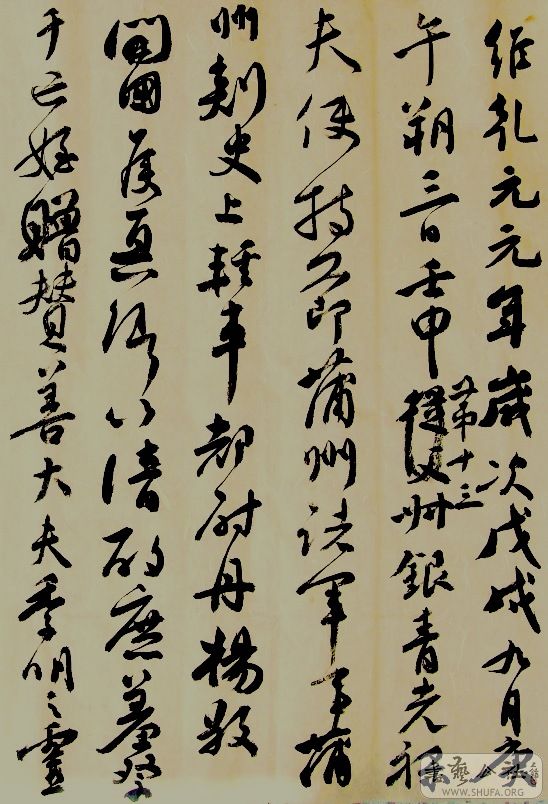 維乾元元年歲次戊戌九月庚
第十三
午朔三日壬申叔銀青光祿
夫使持節蒲州諸軍事蒲
州刺史上輕車都尉丹楊縣
開國侯真卿以清酌庶羞祭
于亡姪贈贊善大夫季明之靈
WWW.SHUFA.ORG